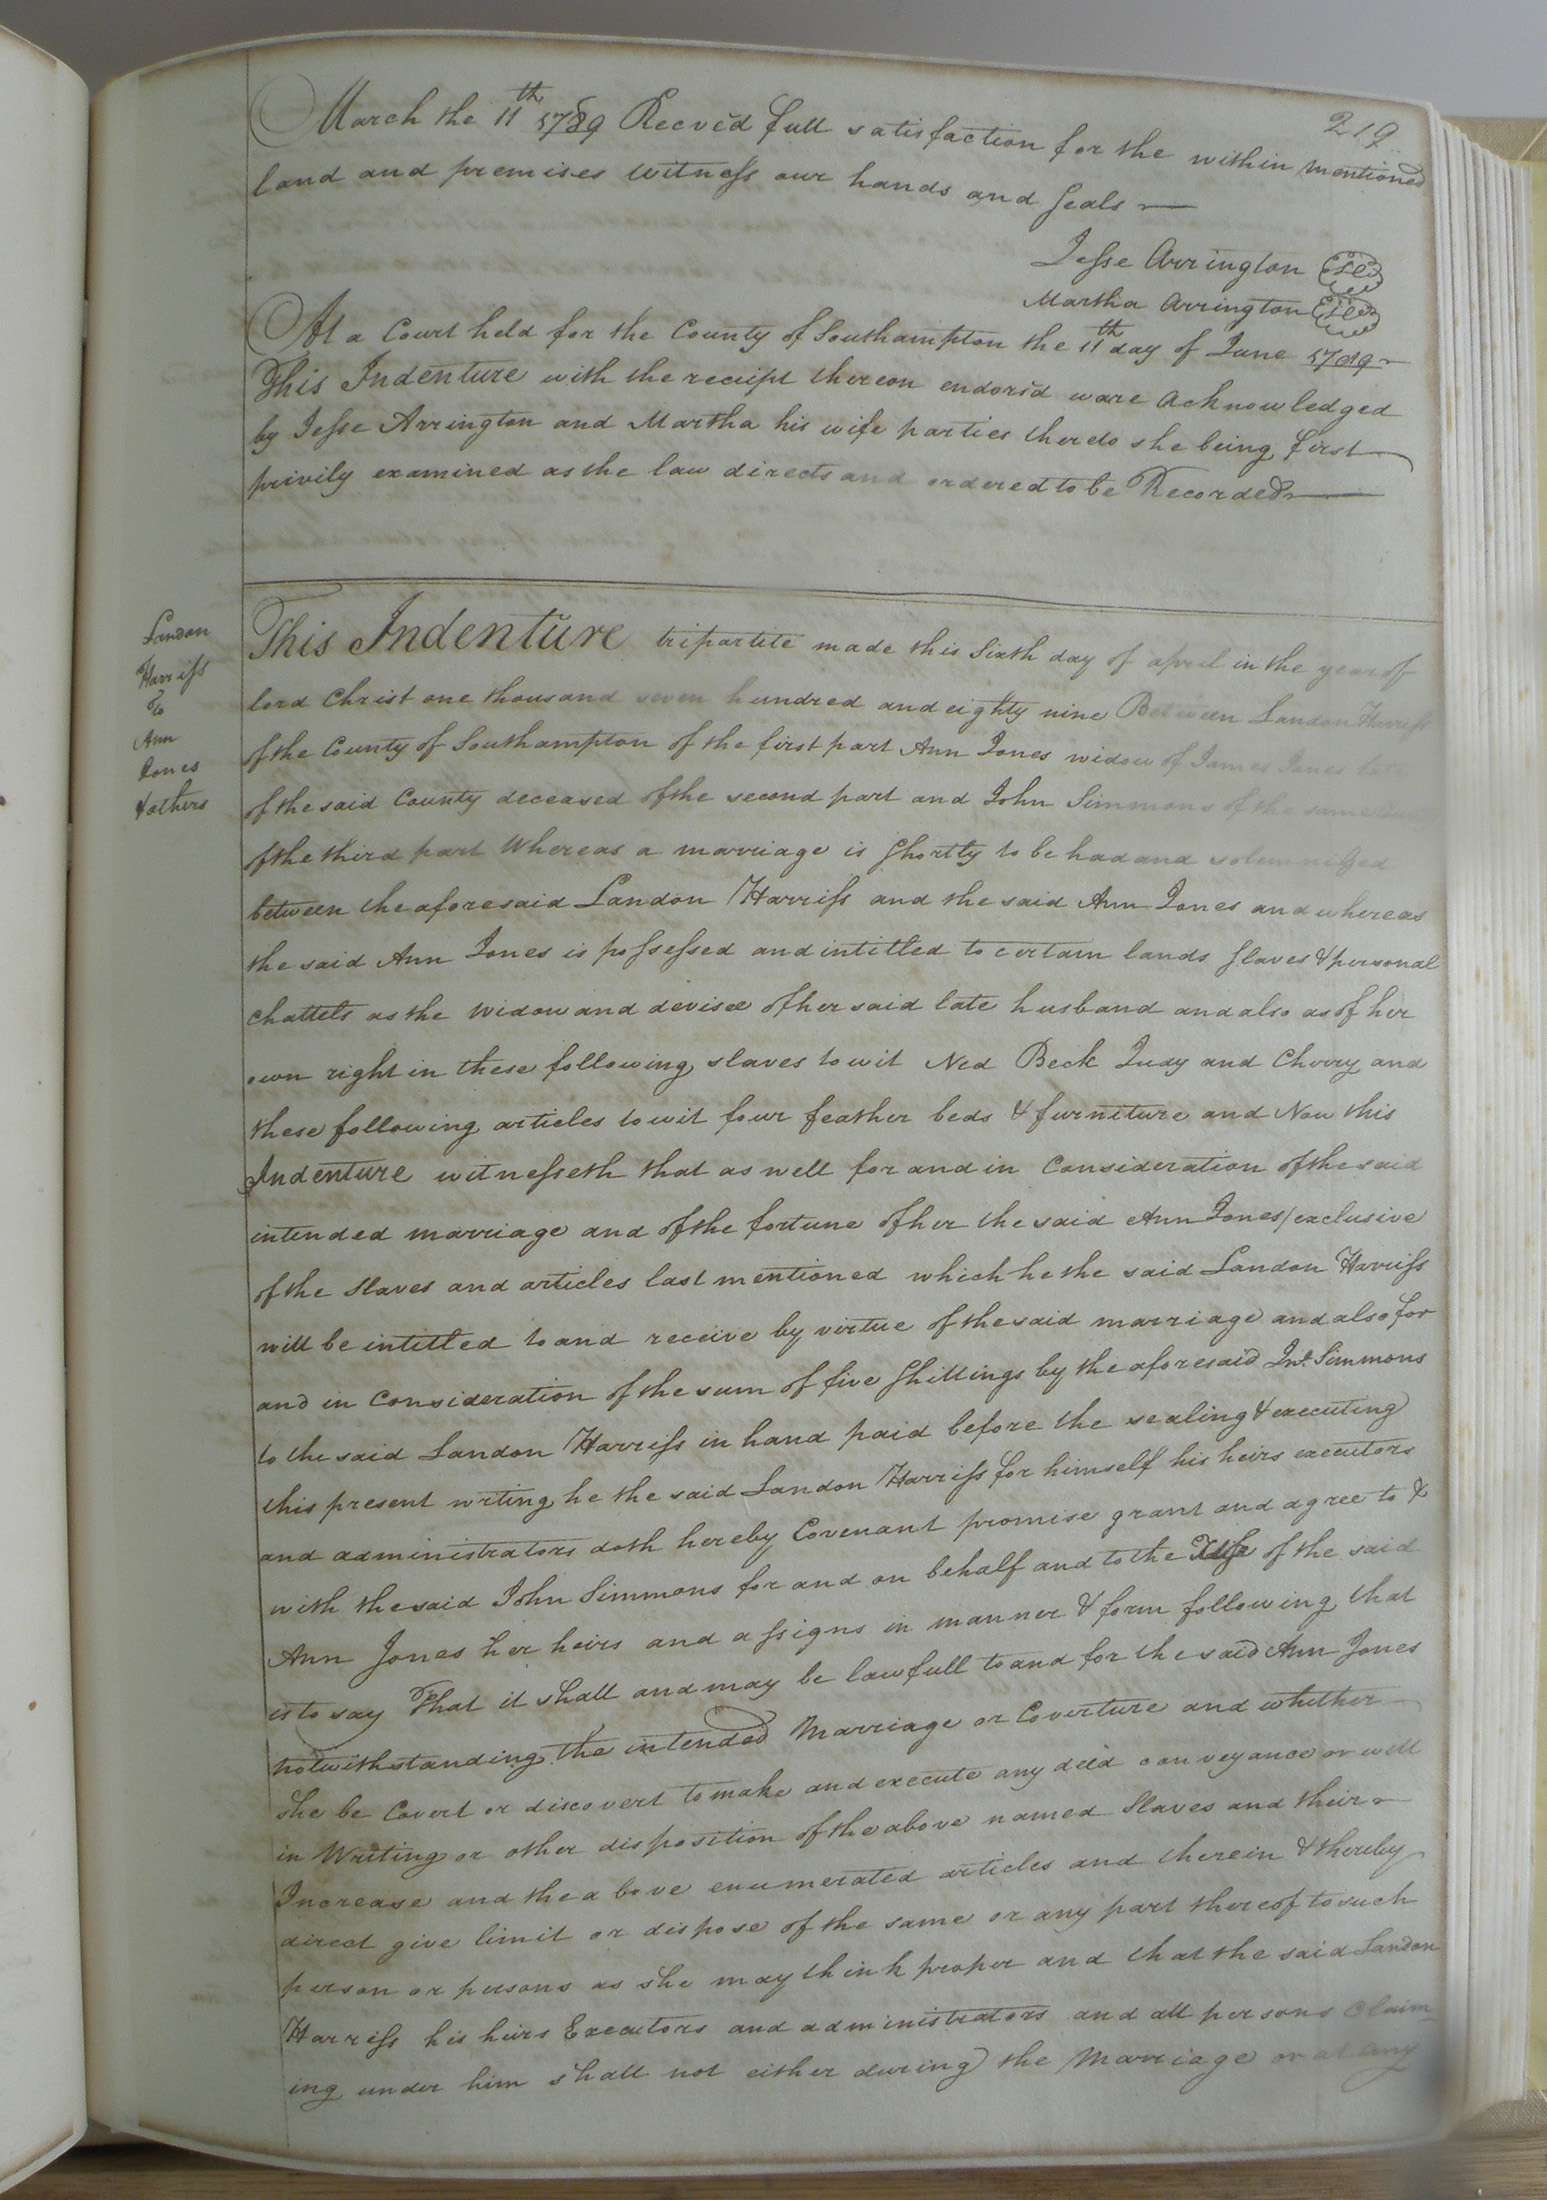 219
March the 11th 1789 Receved full satisfaction for the within mentioned
land and premises witness our hands and seals
Jesse Arrington
Martha Arrington
At a Court held for the County of Southampton the 11th day of June 1789
This Indenture with the receipt thereon endorsd ware acknowledged
by Jesse Arrington and Martha his wife parties thereto she being first
privily examined as the law directs and ordered to be Recorded
Landon
Harriss
To
Ann
Jones
& others
This Indenture tripartite made this sixth day of april in the year of
lord Christ one thousand seven hundred and eighty nine Between Landon Harriss
of the County of Southampton of the first part Ann Jones widow of James Jones late
of the said County deceased of the second part and John Simmons of the same
of the third part Whereas a marriage is shortly to be had and solemnized
between the aforesaid Landon Harriss and the said Ann Jones and whereas
the said Ann Jones is possessed and intitled to certain lands slaves & personal
chattels as the widow and devisee of her said late husband and also as of her
own right in these following slaves to wit Ned Beck Judy and Cherry and
these following articles to wit four feather beds & furniture and Now this
Indenture witnesseth that as well for and in Consideration of the said
intended marriage and of the fortune of her the said Ann Jones/exclusive
of the slaves and articles last mentioned which he the said Landon Harriss
will be intitled to and receive by virtue of the said marriage and also for
and in Consideration of the sum of five shillings by the aforesaid Jno. Simmons
to the said Landon Harriss in hand paid before the sealing & executing
this present writing he the said Landon Harriss for himself his heirs executors
and administrators doth hereby Covenant promise grant and agree to &
with the said John Simmons for and on behalf and to the Use of the said
Ann Jones her heirs and assigns in manner & form following that
is to say That it shall and may be lawfull to and for the said Ann Jones
notwithstanding the intended Marriage or Coverture and whether
She be Covert or discovert to make and execute any deed conveyance or will
in Writing or other disposition of the above named Slaves and their
Increase and the above enumerated articles and therein & thereby
direct give limit or dispose of the same or any part thereof to such
person or persons as she may think proper and that the said Landon
Harriss his heirs Executors and administrators and all persons claim-
ing under him shall not either during the Marriage or at any